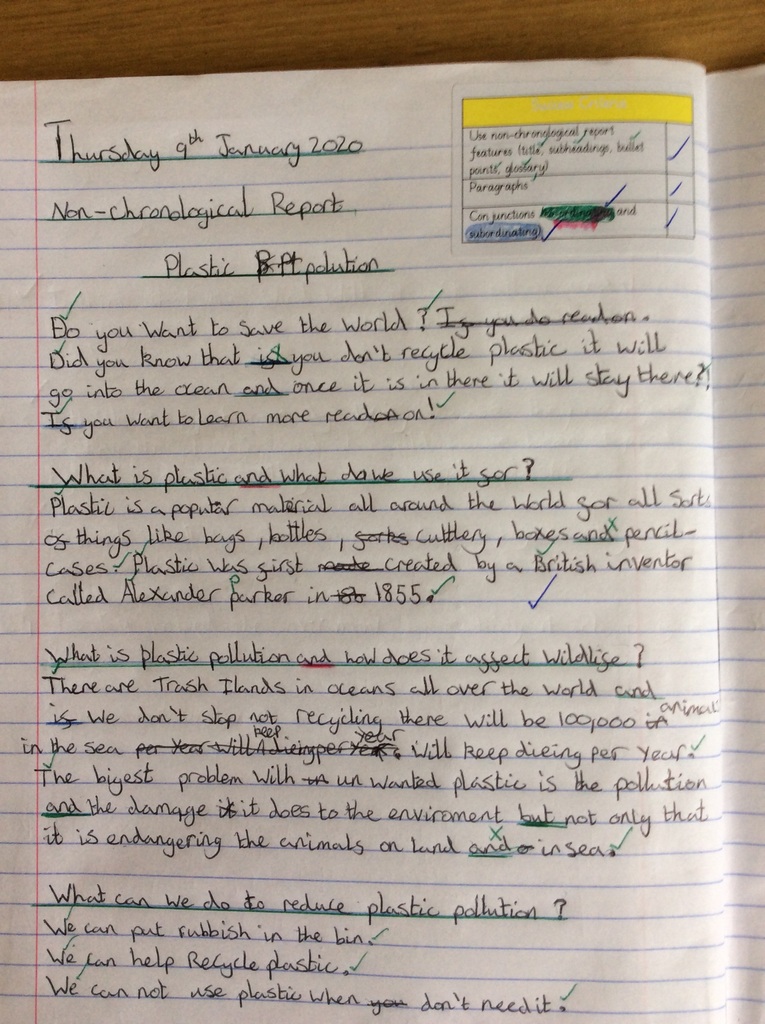 Thursday 9th January 2020
Success Criteria
Use non-chronological report
features (title, subheadings, bullet
points, glossary)
Paragraphs
Conjunctions and
subordinating)
Non-chronological Report
Plastic polution
Do you want to save the world? If you do read on.
Did you know that if you don't recycle plastic it will
go into the ocean and once it is in there it will stay there?!
If you want to learn more read on!
What is plastic and what do we use it for?
Plastic is a popular material all around the world for all sorts
of things like bags, bottles, forks cuttlery, boxes and pencil-
cases. Plastic was first made created by a British inventor
called Alexander parker in 1855.
What is plastic pollution and how does it affect wildlife?
There are Trash Ilands in oceans all over the world and
if we don't stop not recycling there will be 100,000 animals
in the sea per year will keep dieing per year. will keep dieing per year.
The bigest problem with un wanted plastic is the pollution
and the damage it does to the enviroment but not only that
it is endangering the animals on land and in sea.
What can we do to reduce plastic pollution?
We can put rubbish in the bin.
We can help Recycle plastic.
We can not use plastic when you don't need it.